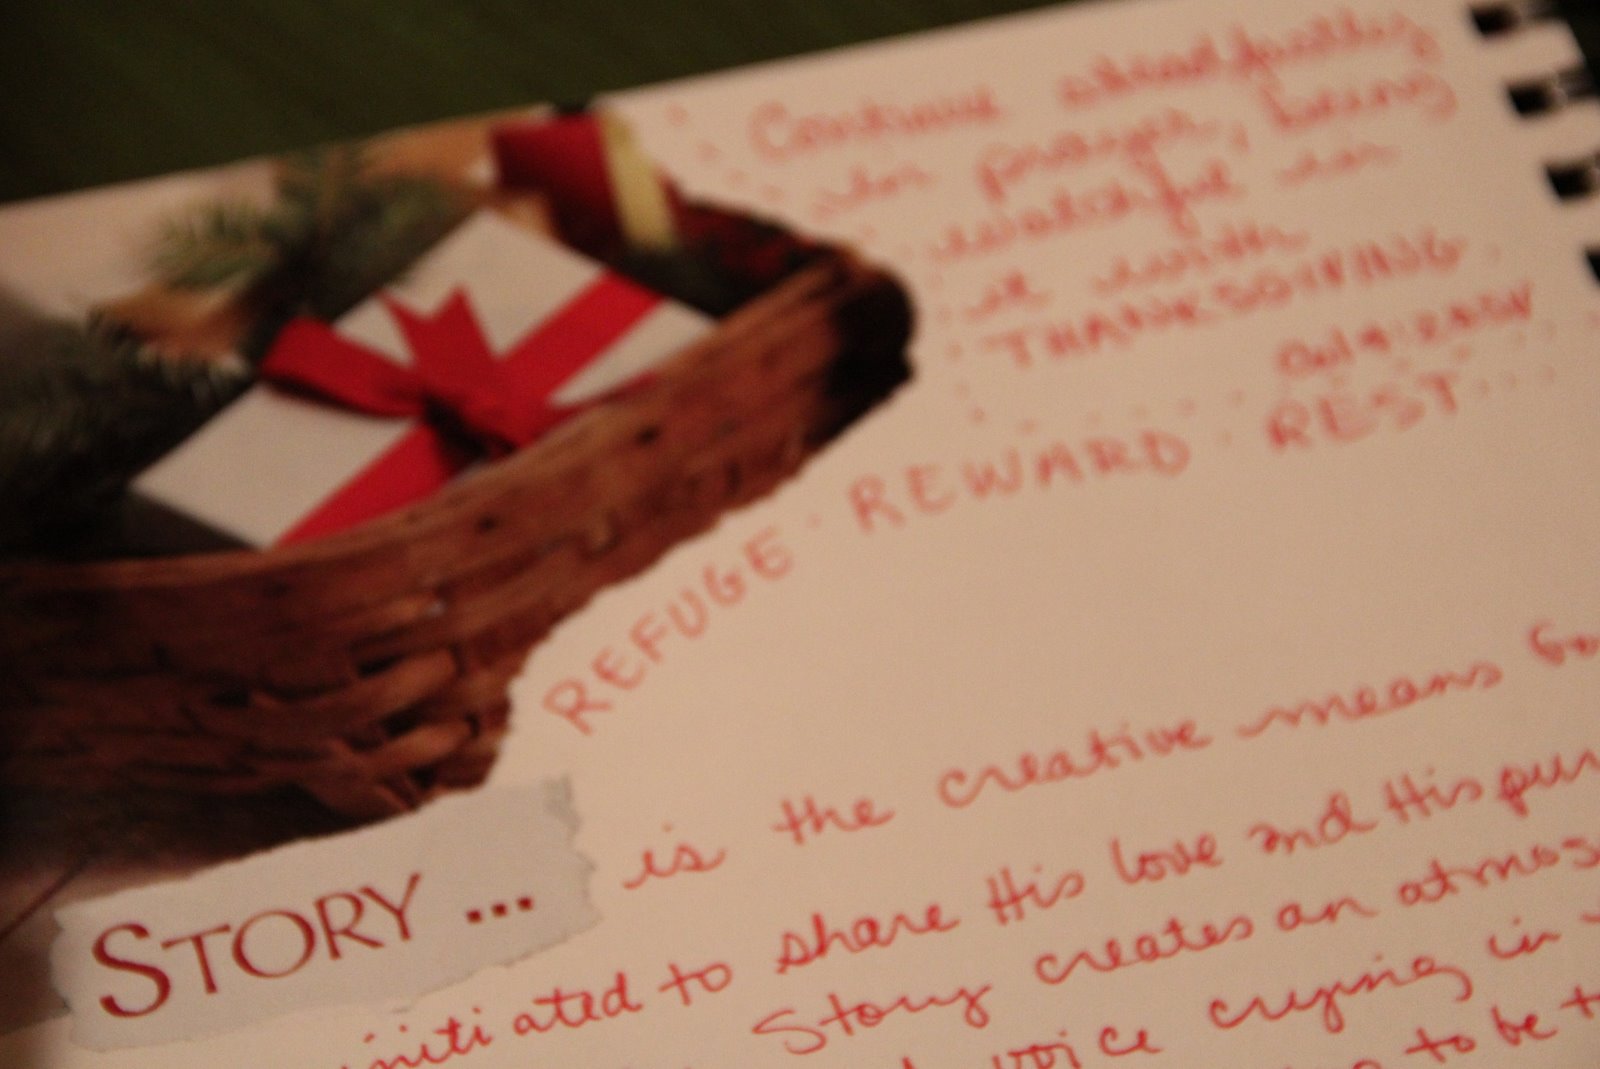 Continue steadfastly
in prayer, being
watchful in
it with
THANKSGIVING.
Col 4:2 ESV
REFUGE · REWARD · REST...
STORY ... is the creative means
initiated to share His love and His
Story creates an
voice crying in
to be